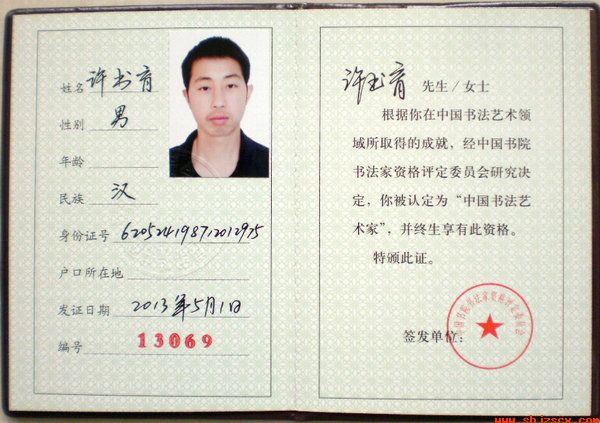 姓名 许书育
性别 男
年龄
民族 汉
身份证号
户口所在地
发证日期 2013年5月1日
编号 13069
许书育 先生/女士
根据你在中国书法艺术领
域所取得的成就，经中国书院
书法家资格评定委员会研究决
定，你被认定为“中国书法艺
术家”，并终生享有此资格。
特颁此证。
签发单位：
中国书院书法家资格评定委员会
www.shjzscx.com